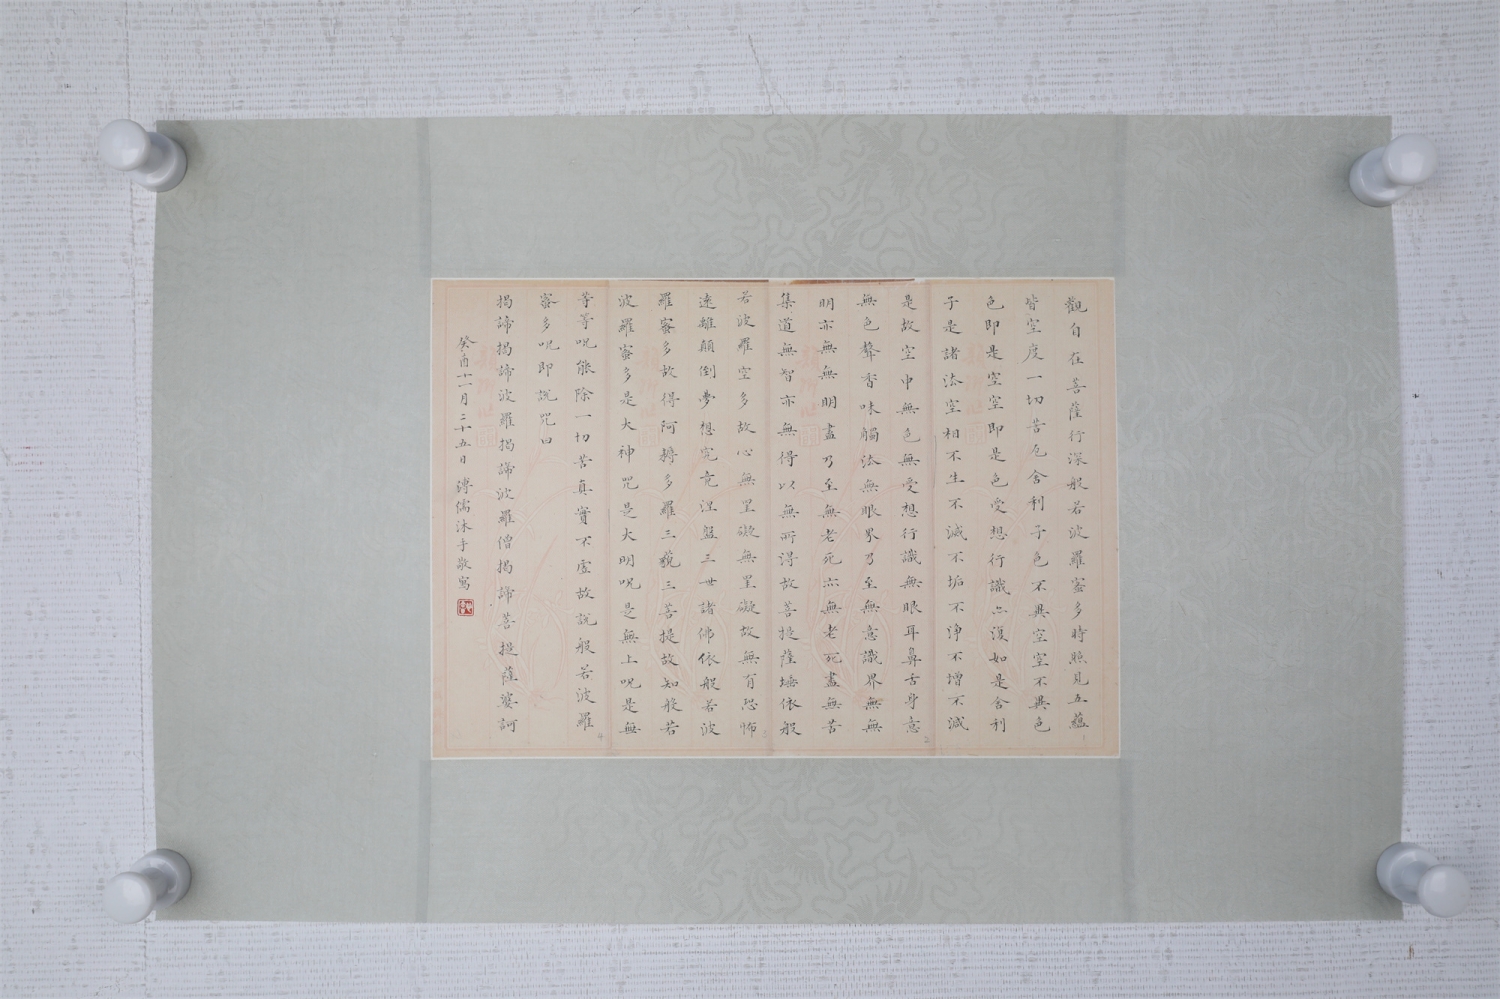 觀自在菩薩行深般若波羅蜜多時照見五蘊
皆空度一切苦厄舍利子色不異空空不異色
色即是空空即是色受想行識亦復如是舍利
子是諸法空相不生不滅不垢不淨不增不減
是故空中無色無受想行識無眼耳鼻舌身意
無色聲香味觸法無眼界乃至無意識界無無
明亦無無明盡乃至無老死亦無老死盡無苦
集道無智亦無得以無所得故菩提薩埵依般
若波羅空多故心無罣礙無罣礙故無有恐怖
遠離顛倒夢想究竟涅盤三世諸佛依般若波
羅蜜多故得阿耨多羅三藐三菩提故知般若
波羅蜜多是大神咒是大明咒是無上咒是無
等等咒能除一切苦真實不虛故說般若波羅
蜜多咒即說咒曰
揭諦揭諦波羅揭諦波羅僧揭諦菩提薩婆訶
癸酉十一月二十五日 溥儒沐手敬寫